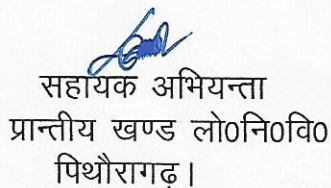 सहायक अभियन्ता
प्रान्तीय खण्ड लो0नि0वि0
पिथौरागढ़।